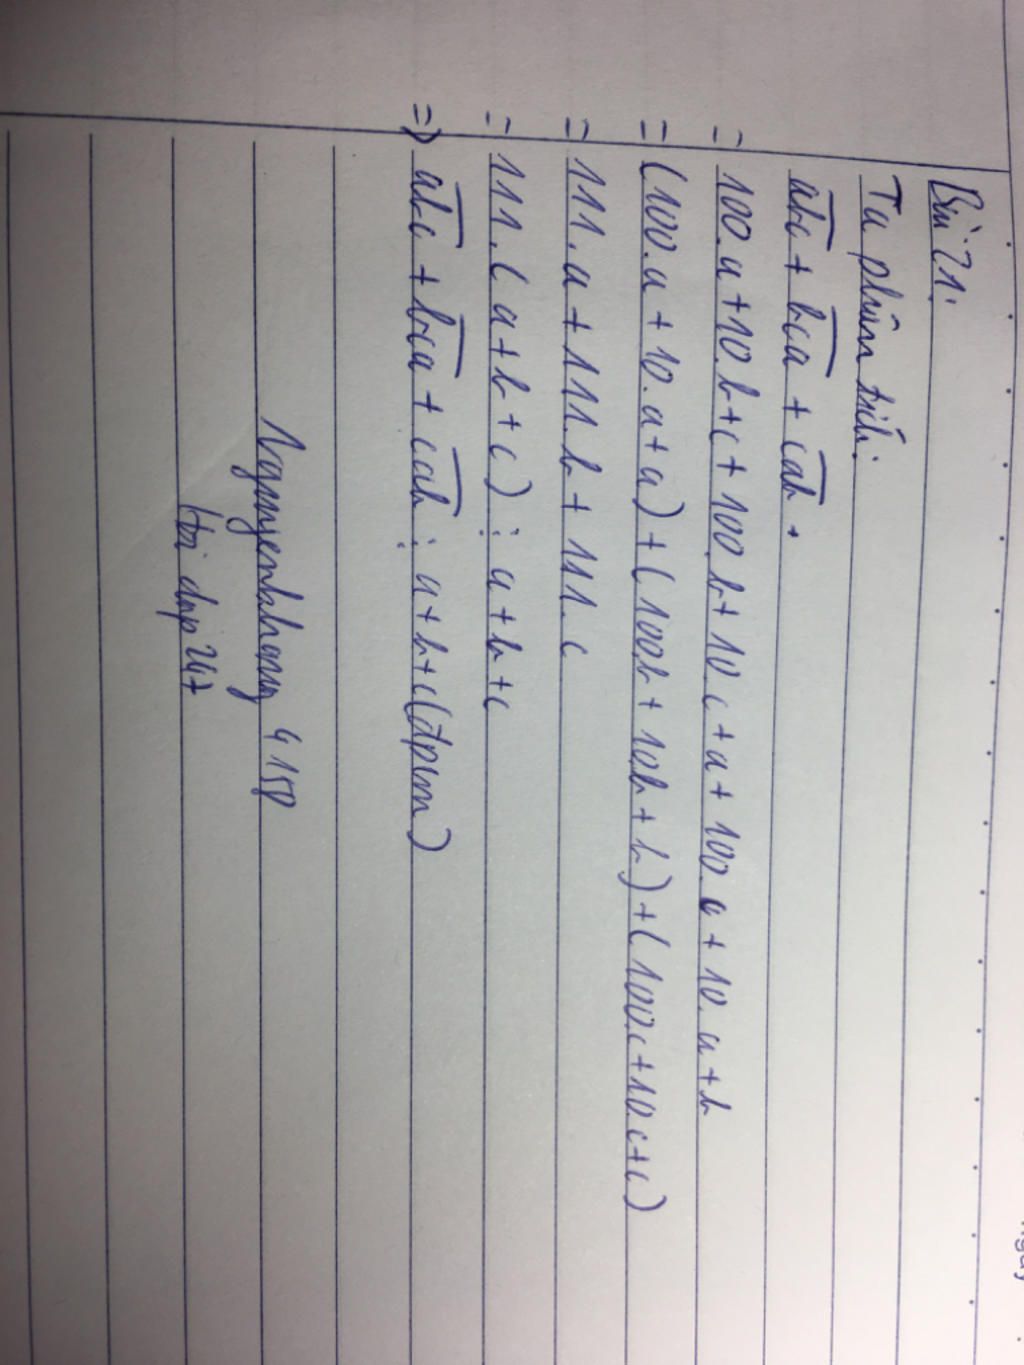 Bài 21:
Ta phân tích:
abc + bca + cab.
= 100.a+10.b+c+100.b+10.c+a+100.c+10.a+b
= (100.a+10.a+a)+(100.b+10.b+b)+(100.c+10.c+c)
= 111.a+111.b+111.c
= 111.(a+b+c) ⋮ a+b+c
=> abc + bca + cab ⋮ a+b+c (đpcm)
Nguyenkhang 4158
Hỏi đáp 247